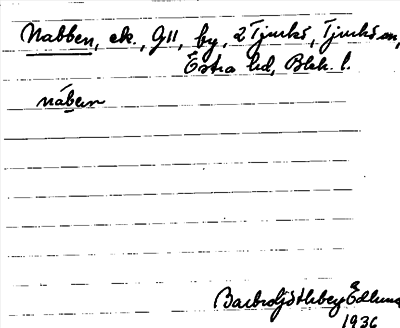 Nabben, ek., G11, by, 2 Tjurkö, Tjurkö sn,
Östra hd, Blek. l.
náben
Edlund
1936